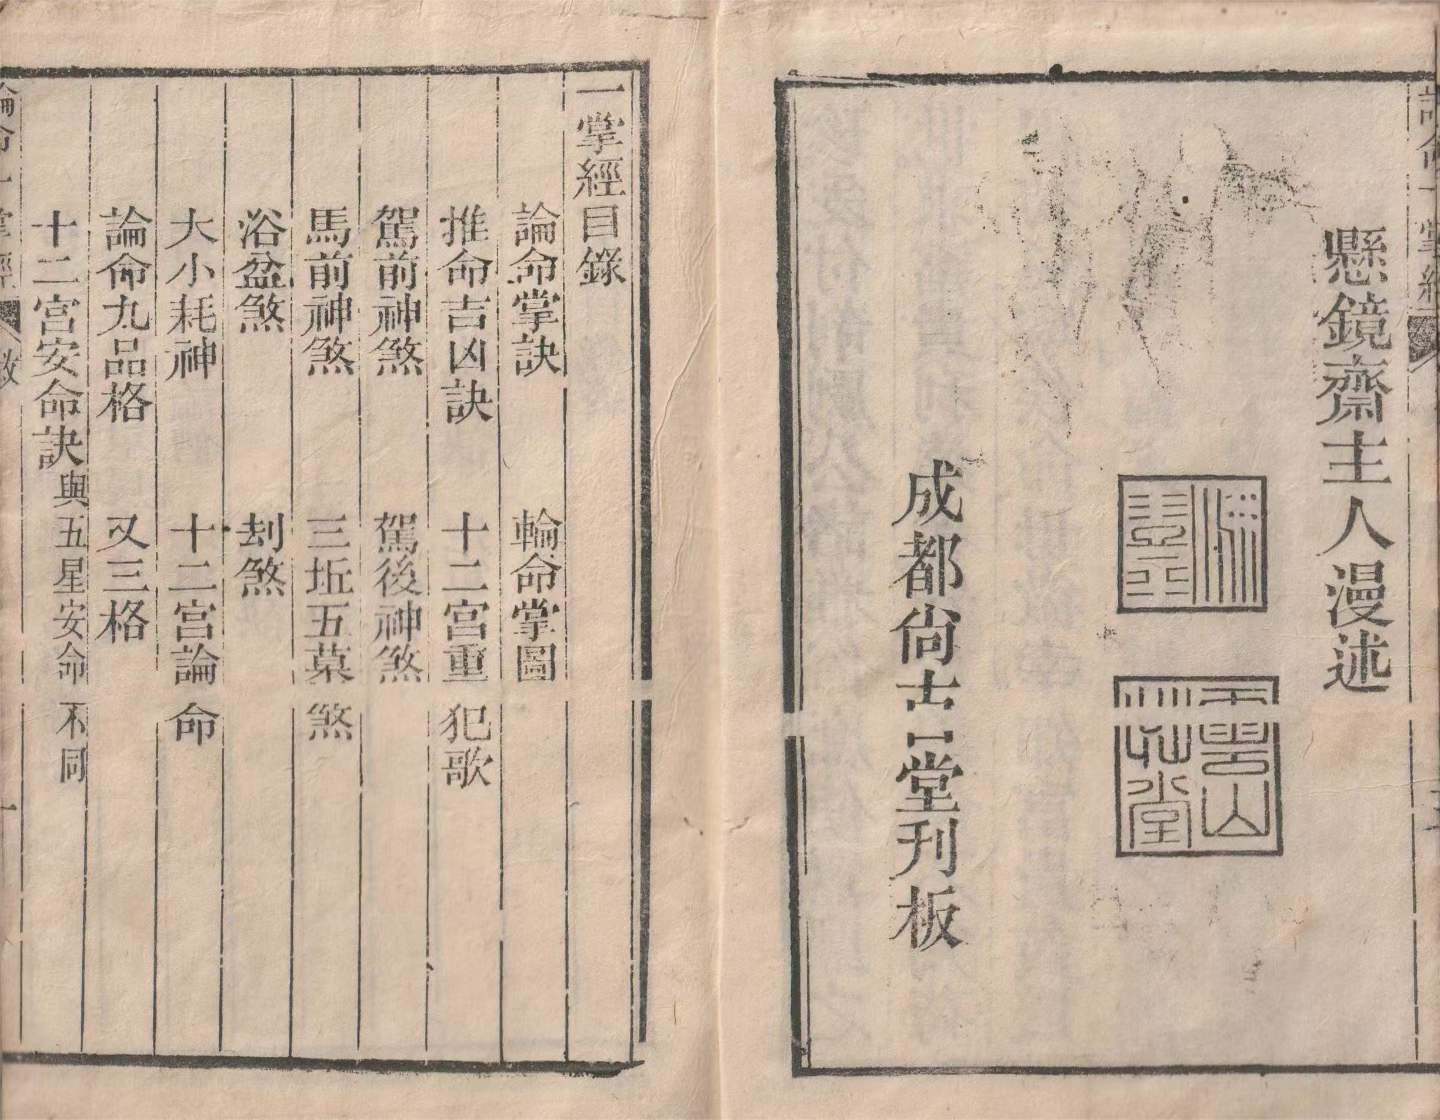 論命一掌經
懸鏡齋主人漫述
成都尙古堂刊板
一掌經目錄
論命掌訣　輪命掌圖
推命吉凶訣　十二宮重犯歌
駕前神煞　駕後神煞
馬前神煞　三坵五墓煞
浴盆煞　刦煞
大小耗神　十二宮論命
論命九品格　又三格
十二宮安命訣與五星安命不同
論命一掌經　一